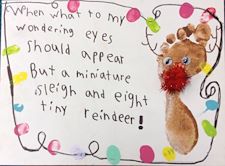 When what to my
wondering eyes
should appear
But a miniature
sleigh and eight
tiny reindeer!